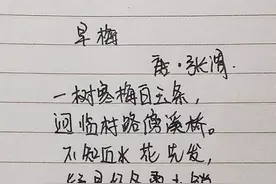 早梅
唐·张谓
一树寒梅白玉条，
迥临村路傍溪桥。
不知近水花先发，